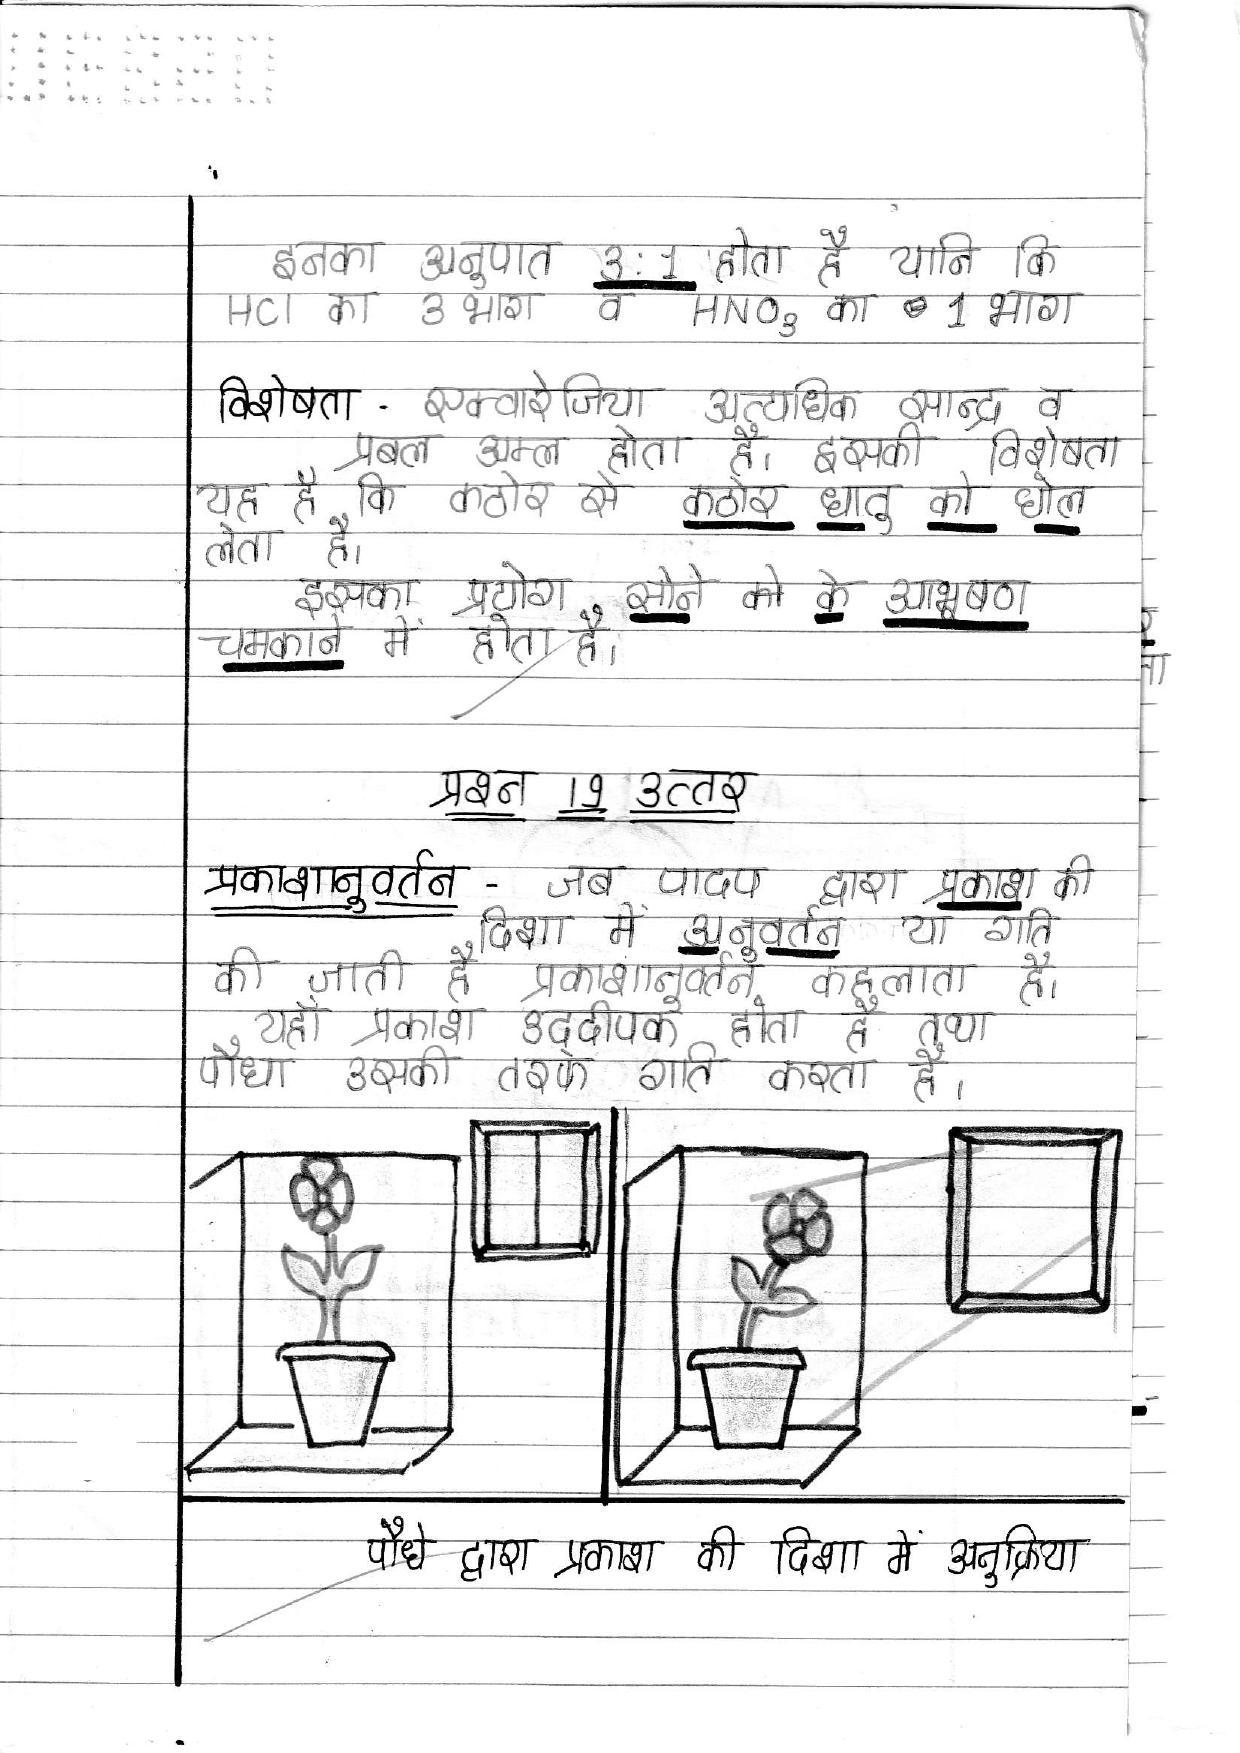 इनका अनुपात 3:1 होता है यानि कि
HCl का 3 भाग व HNO3 का 1 भाग
विशेषता - एक्वारेजिया अत्यधिक सान्द्र व
प्रबल अम्ल होता है। इसकी विशेषता
यह है कि कठोर से कठोर धातु को घोल
लेता है।
इसका प्रयोग सोने को के आभूषण
चमकाने में होता है।
प्रश्न 19 उत्तर
प्रकाशानुवर्तन - जब पादप द्वारा प्रकाश की
दिशा में अनुवर्तन या गति
की जाती है प्रकाशानुवर्तन कहलाता है।
यहाँ प्रकाश उद्दीपक होता है तथा
पौधा उसकी तरफ गति करता है।
पौधे द्वारा प्रकाश की दिशा में अनुक्रिया